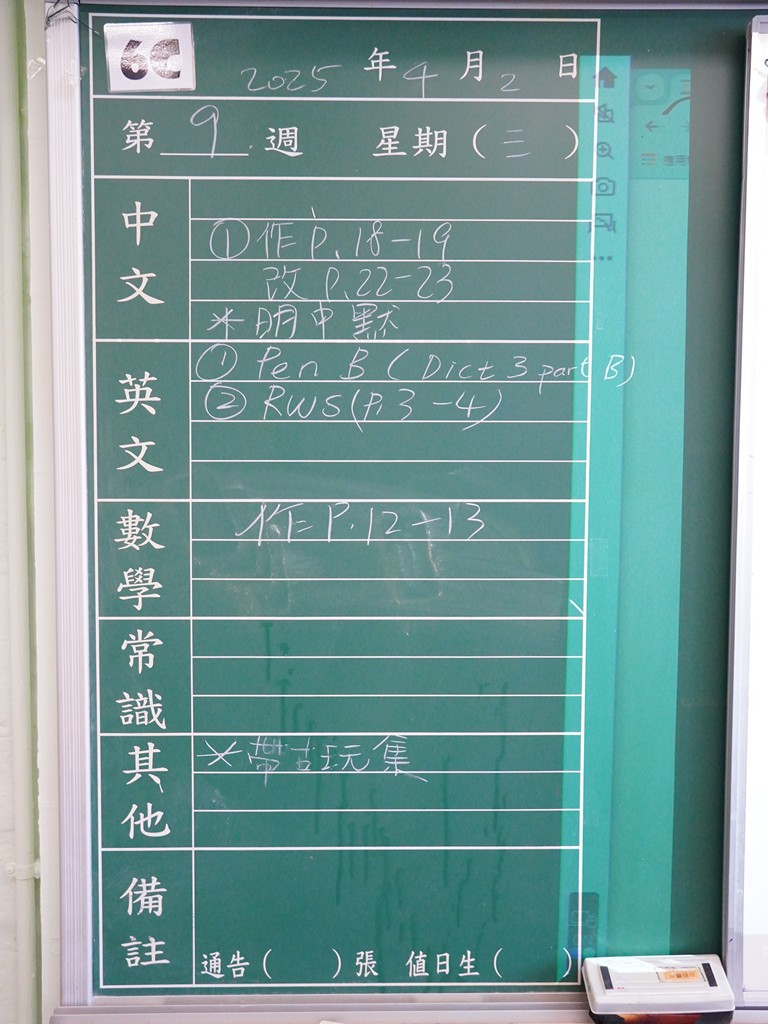 6C 2025 年 4 月 2 日
第 9 週 星期（三）
中文
①作 P.18-19
改 P.22-23
*明中默
英文
① Pen B (Dict 3 part B)
② RWS (P.3-4)
數學
作 P.12-13
常識
其他
*帶古玩集
備註
通告（ ）張 值日生（ ）